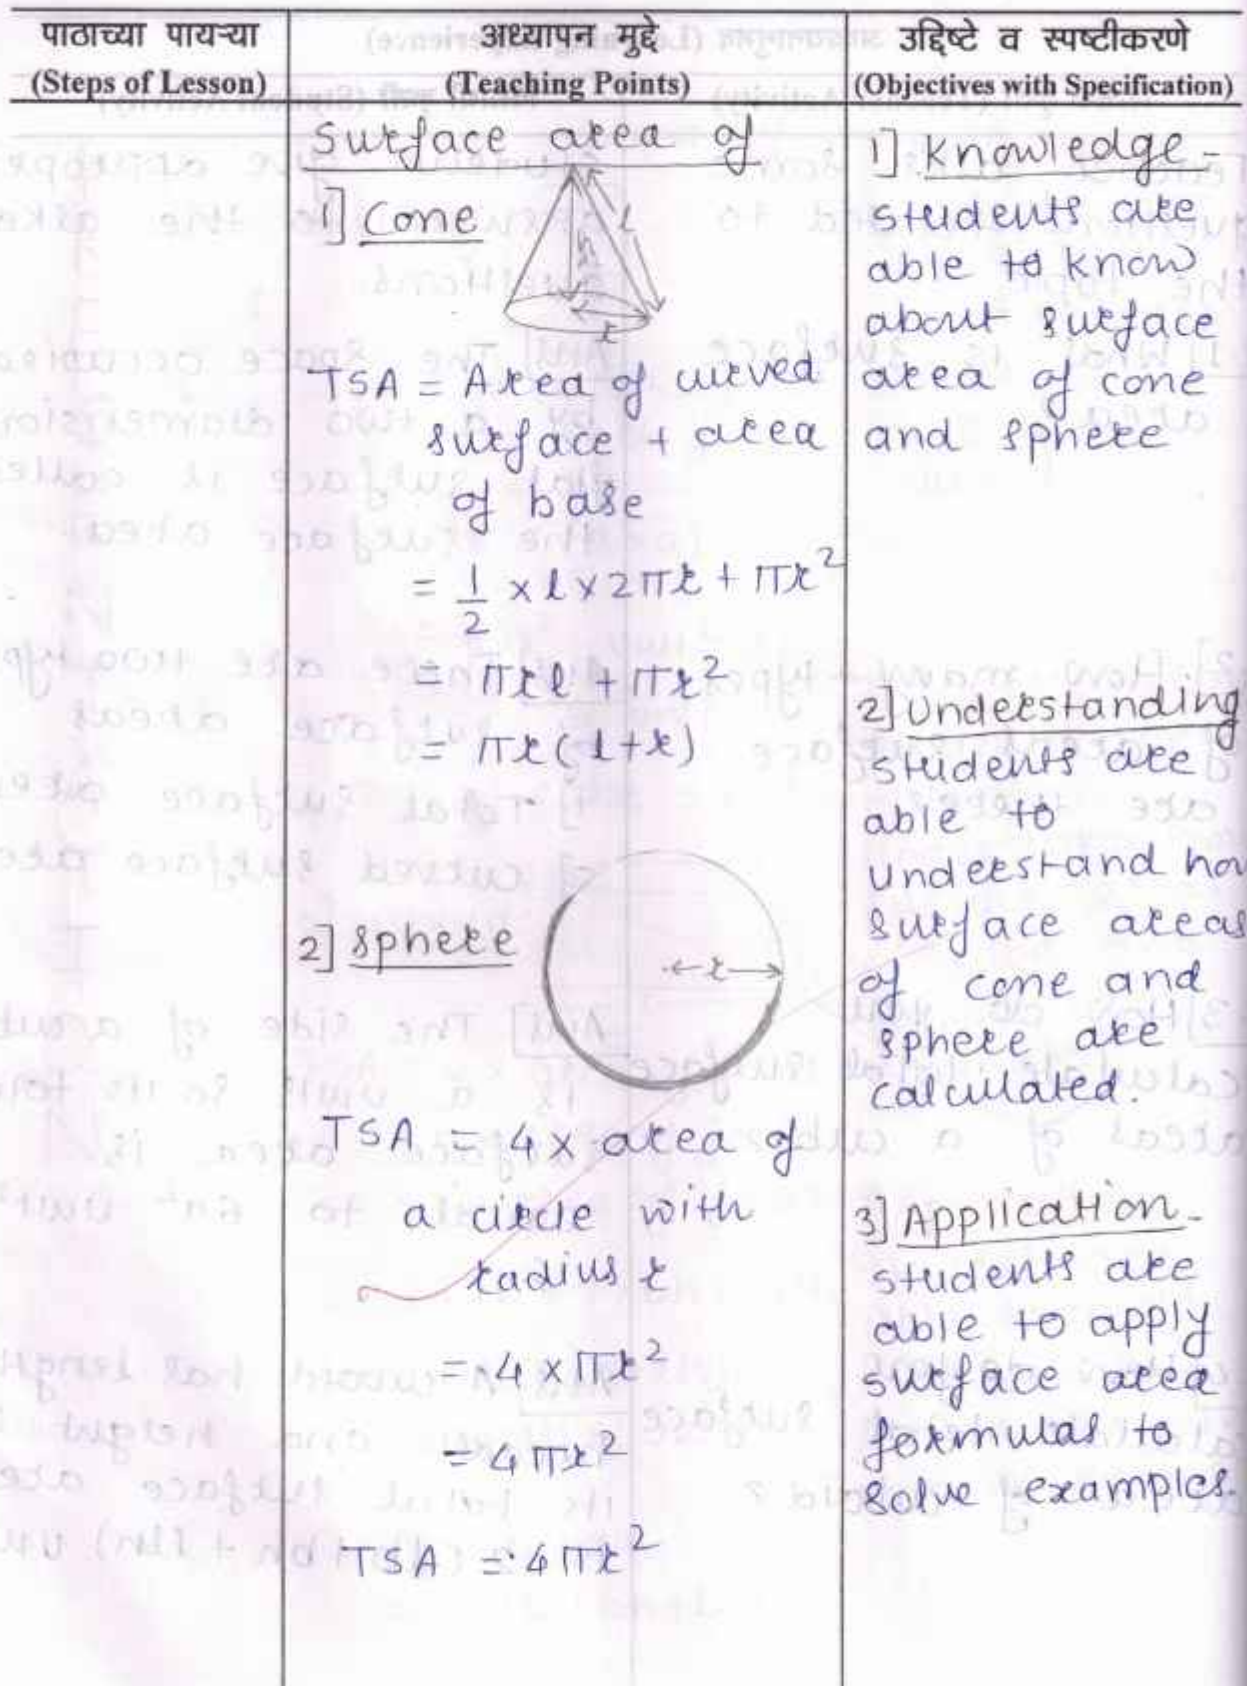 पाठाच्या पायऱ्या
(Steps of Lesson)
अध्यापन मुद्दे
(Teaching Points)
उद्दिष्टे व स्पष्टीकरणे
(Objectives with Specification)
Surface area of
1] Cone
l
h
r
TSA = Area of curved
surface + area
of base
= 1/2 × l × 2πr + πr²
= πrl + πr²
= πr(l+r)
2] sphere
r
TSA = 4 × area of
a circle with
radius r
= 4 × πr²
= 4πr²
TSA = 4πr²
1] Knowledge -
students are
able to know
about surface
area of cone
and sphere
2] Understanding
students are
able to
understand how
surface areas
of cone and
sphere are
calculated.
3] Application -
students are
able to apply
surface area
formulas to
solve examples.